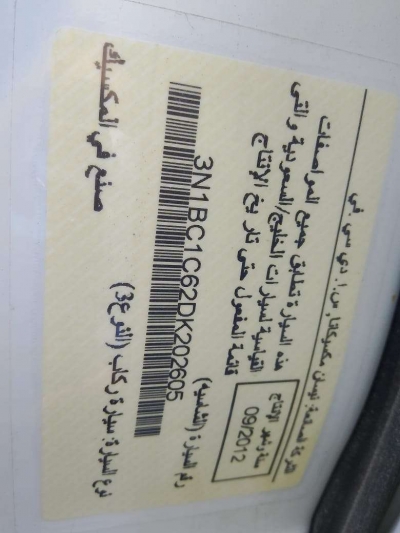 الشركة المصنعة: نيسان مكسيكانا, س.ا. دي سي.في
سنة وشهر الإنتاج
09/2012
هذه السيارة تطابق جميع المواصفات
القياسية لسيارات الخليج/السعودية والتى
قائمة المفعول حتى تاريخ الإنتاج
رقم السيارة (الشاسيه)
3N1BC1C62DK202605
نوع السيارة: سيارة ركاب (النوع 3)
صنع في المكسيك